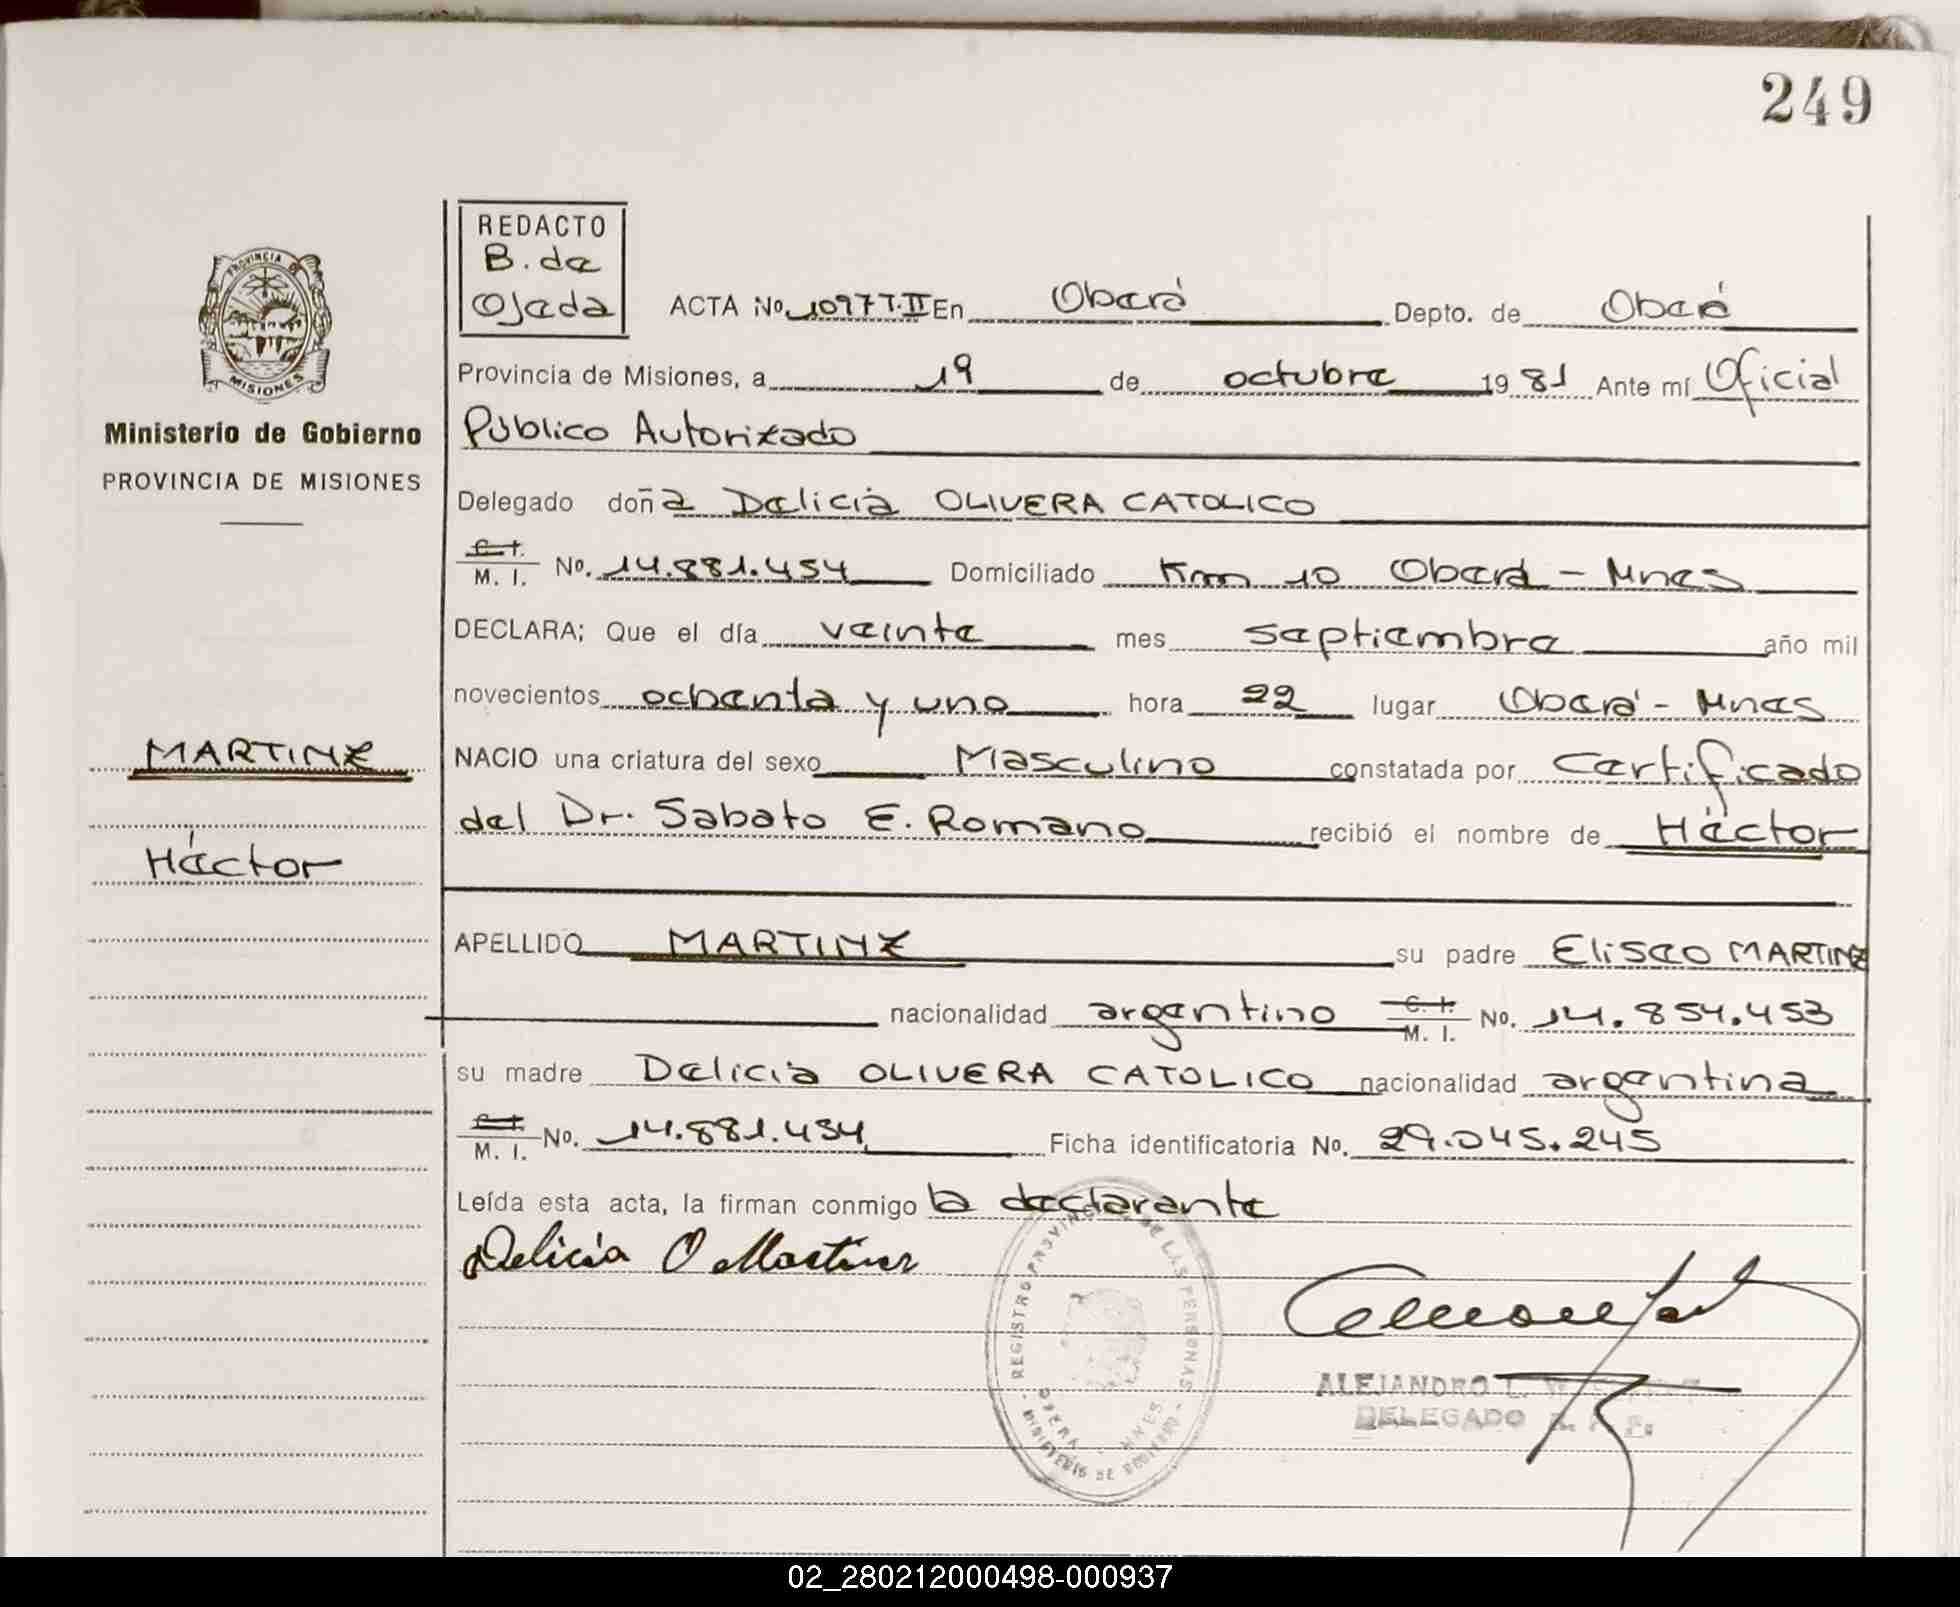 249
REDACTO
B. de
Ojeda
PROVINCIA DE
MISIONES
Ministerio de Gobierno
PROVINCIA DE MISIONES
ACTA No. 1097 T.II En Oberá Depto. de Oberá
Provincia de Misiones, a 19 de octubre 1981 Ante mí Oficial
Público Autorizado
Delegado doña Delicia OLIVERA CATOLICO
C. I.
M. I. No. 14.881.454 Domiciliado Km 10 Oberá - Mnes
DECLARA; Que el día veinte mes septiembre año mil
novecientos ochenta y uno hora 22 lugar Oberá - Mnes
MARTINZ
NACIO una criatura del sexo Masculino constatada por Certificado
del Dr. Sabato E. Romano recibió el nombre de Héctor
Héctor
APELLIDO MARTINZ su padre Eliseo MARTINZ
nacionalidad argentino C. I. M. I. No. 14.854.453
su madre Delicia OLIVERA CATOLICO nacionalidad argentina
C. I.
M. I. No. 14.881.454 Ficha identificatoria No. 29.045.245
Leída esta acta, la firman conmigo la declarante
Delicia O Martinz
REGISTRO PROVINCIAL DE LAS PERSONAS
OBERA MNES.
MINISTERIO DE GOBIERNO
ALEJANDRO L.
DELEGADO
02_280212000498-000937